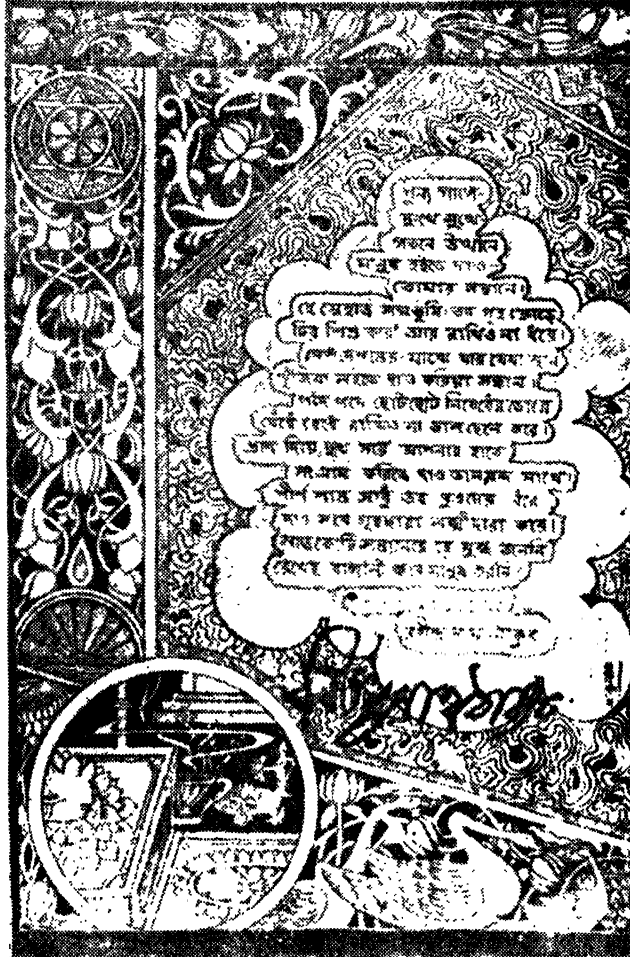 পুণ্য পাপে
দুঃখে সুখে
পতনে উত্থানে
মানুষ হইতে দাও
তোমার সন্তানে।
হে স্নেহার্ত্ত বঙ্গভূমি তব গৃহ ক্রোড়ে
চির শিশু করে' আর রাখিও না ধরে।
দেশ দেশান্তর মাঝে যার যেথা স্থান
খুঁজিয়া লইতে দাও করিয়া সন্ধান।
পদে পদে ছোট ছোট নিষেধের ডোরে
বেঁধে বেঁধে রাখিও না ভাল ছেলে করে।
প্রাণ দিয়ে, দুঃখ সয়ে' আপনার হাতে
সংগ্রাম করিতে দাও ভালমন্দ সাথে।
শীর্ণ শান্ত সাধু তব পুত্রদের ধরে
দাও সবে গৃহছাড়া লক্ষ্মীছাড়া করে।
সাতকোটি সন্তানেরে হে মুগ্ধ জননি
রেখেছ বাঙ্গালী করে মানুষ করনি।
রবীন্দ্রনাথ ঠাকুর